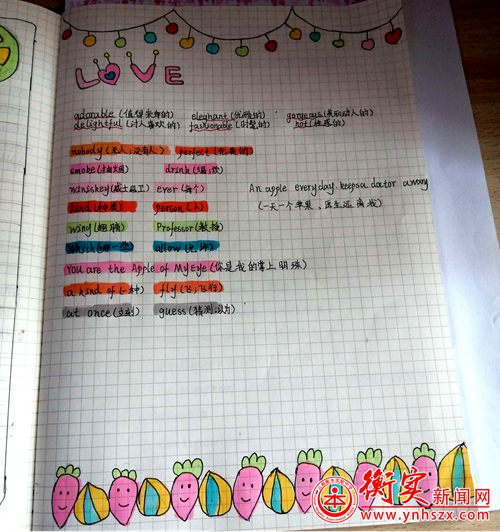 LOVE
adorable (值得崇拜的) eleghant (优雅的) gorgeous (美丽动人的)
delightful (讨人喜欢的) fashionable (时髦的) hot (性感的)
nobody (无人;没有人) perfect (完美的)
smoke (抽烟) drink (喝;饮)
winiskey (威士忌) ever (每个) An apple everyday keepsa doctor away
kind (种类) person (人) (一天一个苹果,医生远离我)
wing (翅膀) Professor (教授)
which (哪一些) allow (允许)
You are the Apple of My Eye (你是我的掌上明珠)
a kind of (一种) fly (飞;飞行)
at once (立刻) guess (猜测;认为)
衡实新闻网
www.ynhszx.com